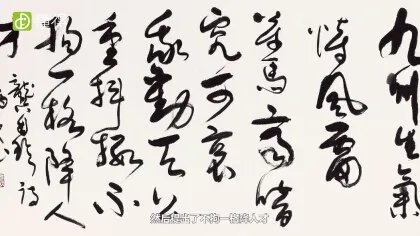 九州生氣
恃風雷
萬馬齊喑
究可哀
我勸天公
重抖擻不
拘一格降人
才
龔自珍詩
然后提出了不拘一格降人才